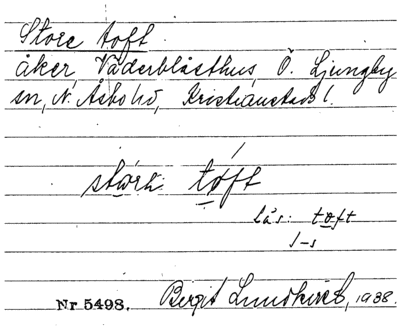 Store toft
åker, Väderblåsthus, Ö. Ljungby
sn, N. Åsbo hd, Kristianstads l.
stork tóft
läs: toft
1-s
Nr 5498. Birgit Lundkvist, 1938.